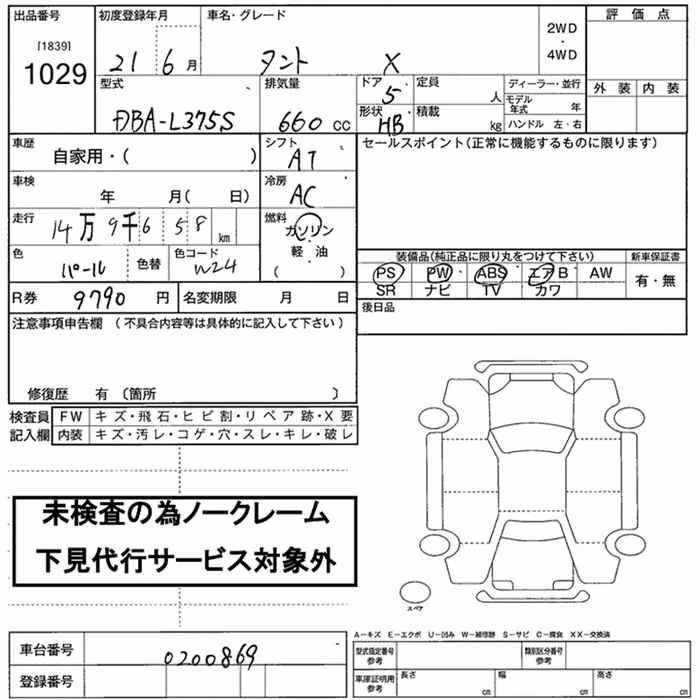 出品番号 初度登録年月 車名・グレード 2WD・4WD 評価点
[1839]
1029
21 6月 タント X
型式 排気量 ドア 定員 ディーラー・並行 外装 内装
DBA-L375S 660 cc 5 人 モデル年式 年
形状 積載 HB kg ハンドル 左・右
車歴 シフト セールスポイント(正常に機能するものに限ります)
自家用・( ) AT
車検 冷房
年 月( 日) AC
走行 燃料
14万9千6 58 km ガソリン・
軽・油
色 色替 色コード ( ) 装備品(純正品に限り丸をつけて下さい) 新車保証書
パール W24 PS PW ABS エアB AW 有・無
SR ナビ TV カワ
R券 9790円 名変期限 月 日 後日品
注意事項申告欄 (不具合内容等は具体的に記入して下さい)
修復歴 有 〔箇所 〕
検査員 FW キズ・飛石・ヒビ割・リペア跡・X要
記入欄 内装 キズ・汚レ・コゲ・穴・スレ・キレ・破レ
未検査の為ノークレーム
下見代行サービス対象外
スペア
A-キズ E-エクボ U-凹み W-補修跡 S-サビ C-腐食 XX-交換済
車台番号 0200869 型式指定番号 参考 類別区分番号 参考
登録番号 車庫証明用 参考 長さ cm 幅 cm 高さ cm